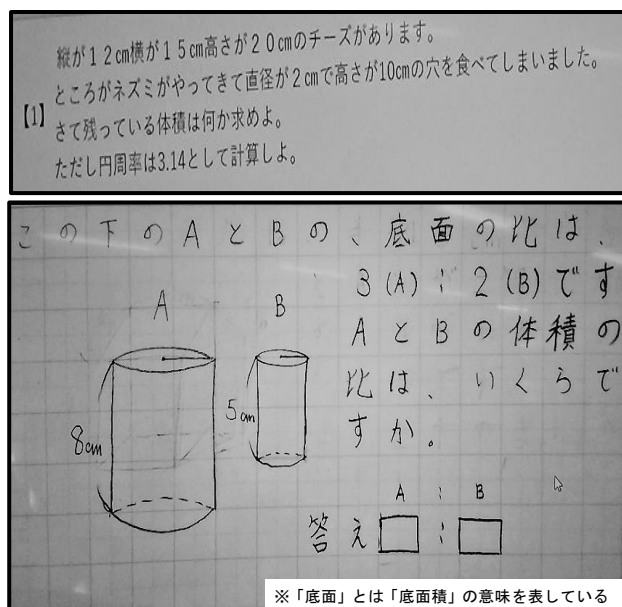 縦が12cm横が15cm高さが20cmのチーズがあります。
【1】
ところがネズミがやってきて直径が2cmで高さが10cmの穴を食べてしまいました。
さて残っている体積は何か求めよ。
ただし円周率は3.14として計算しよ。
この下のAとBの、底面の比は、
3(A):2(B)です
AとBの体積の
比は、いくらで
すか。
A
B
8cm
5cm
A : B
答え □:□
※「底面」とは「底面積」の意味を表している